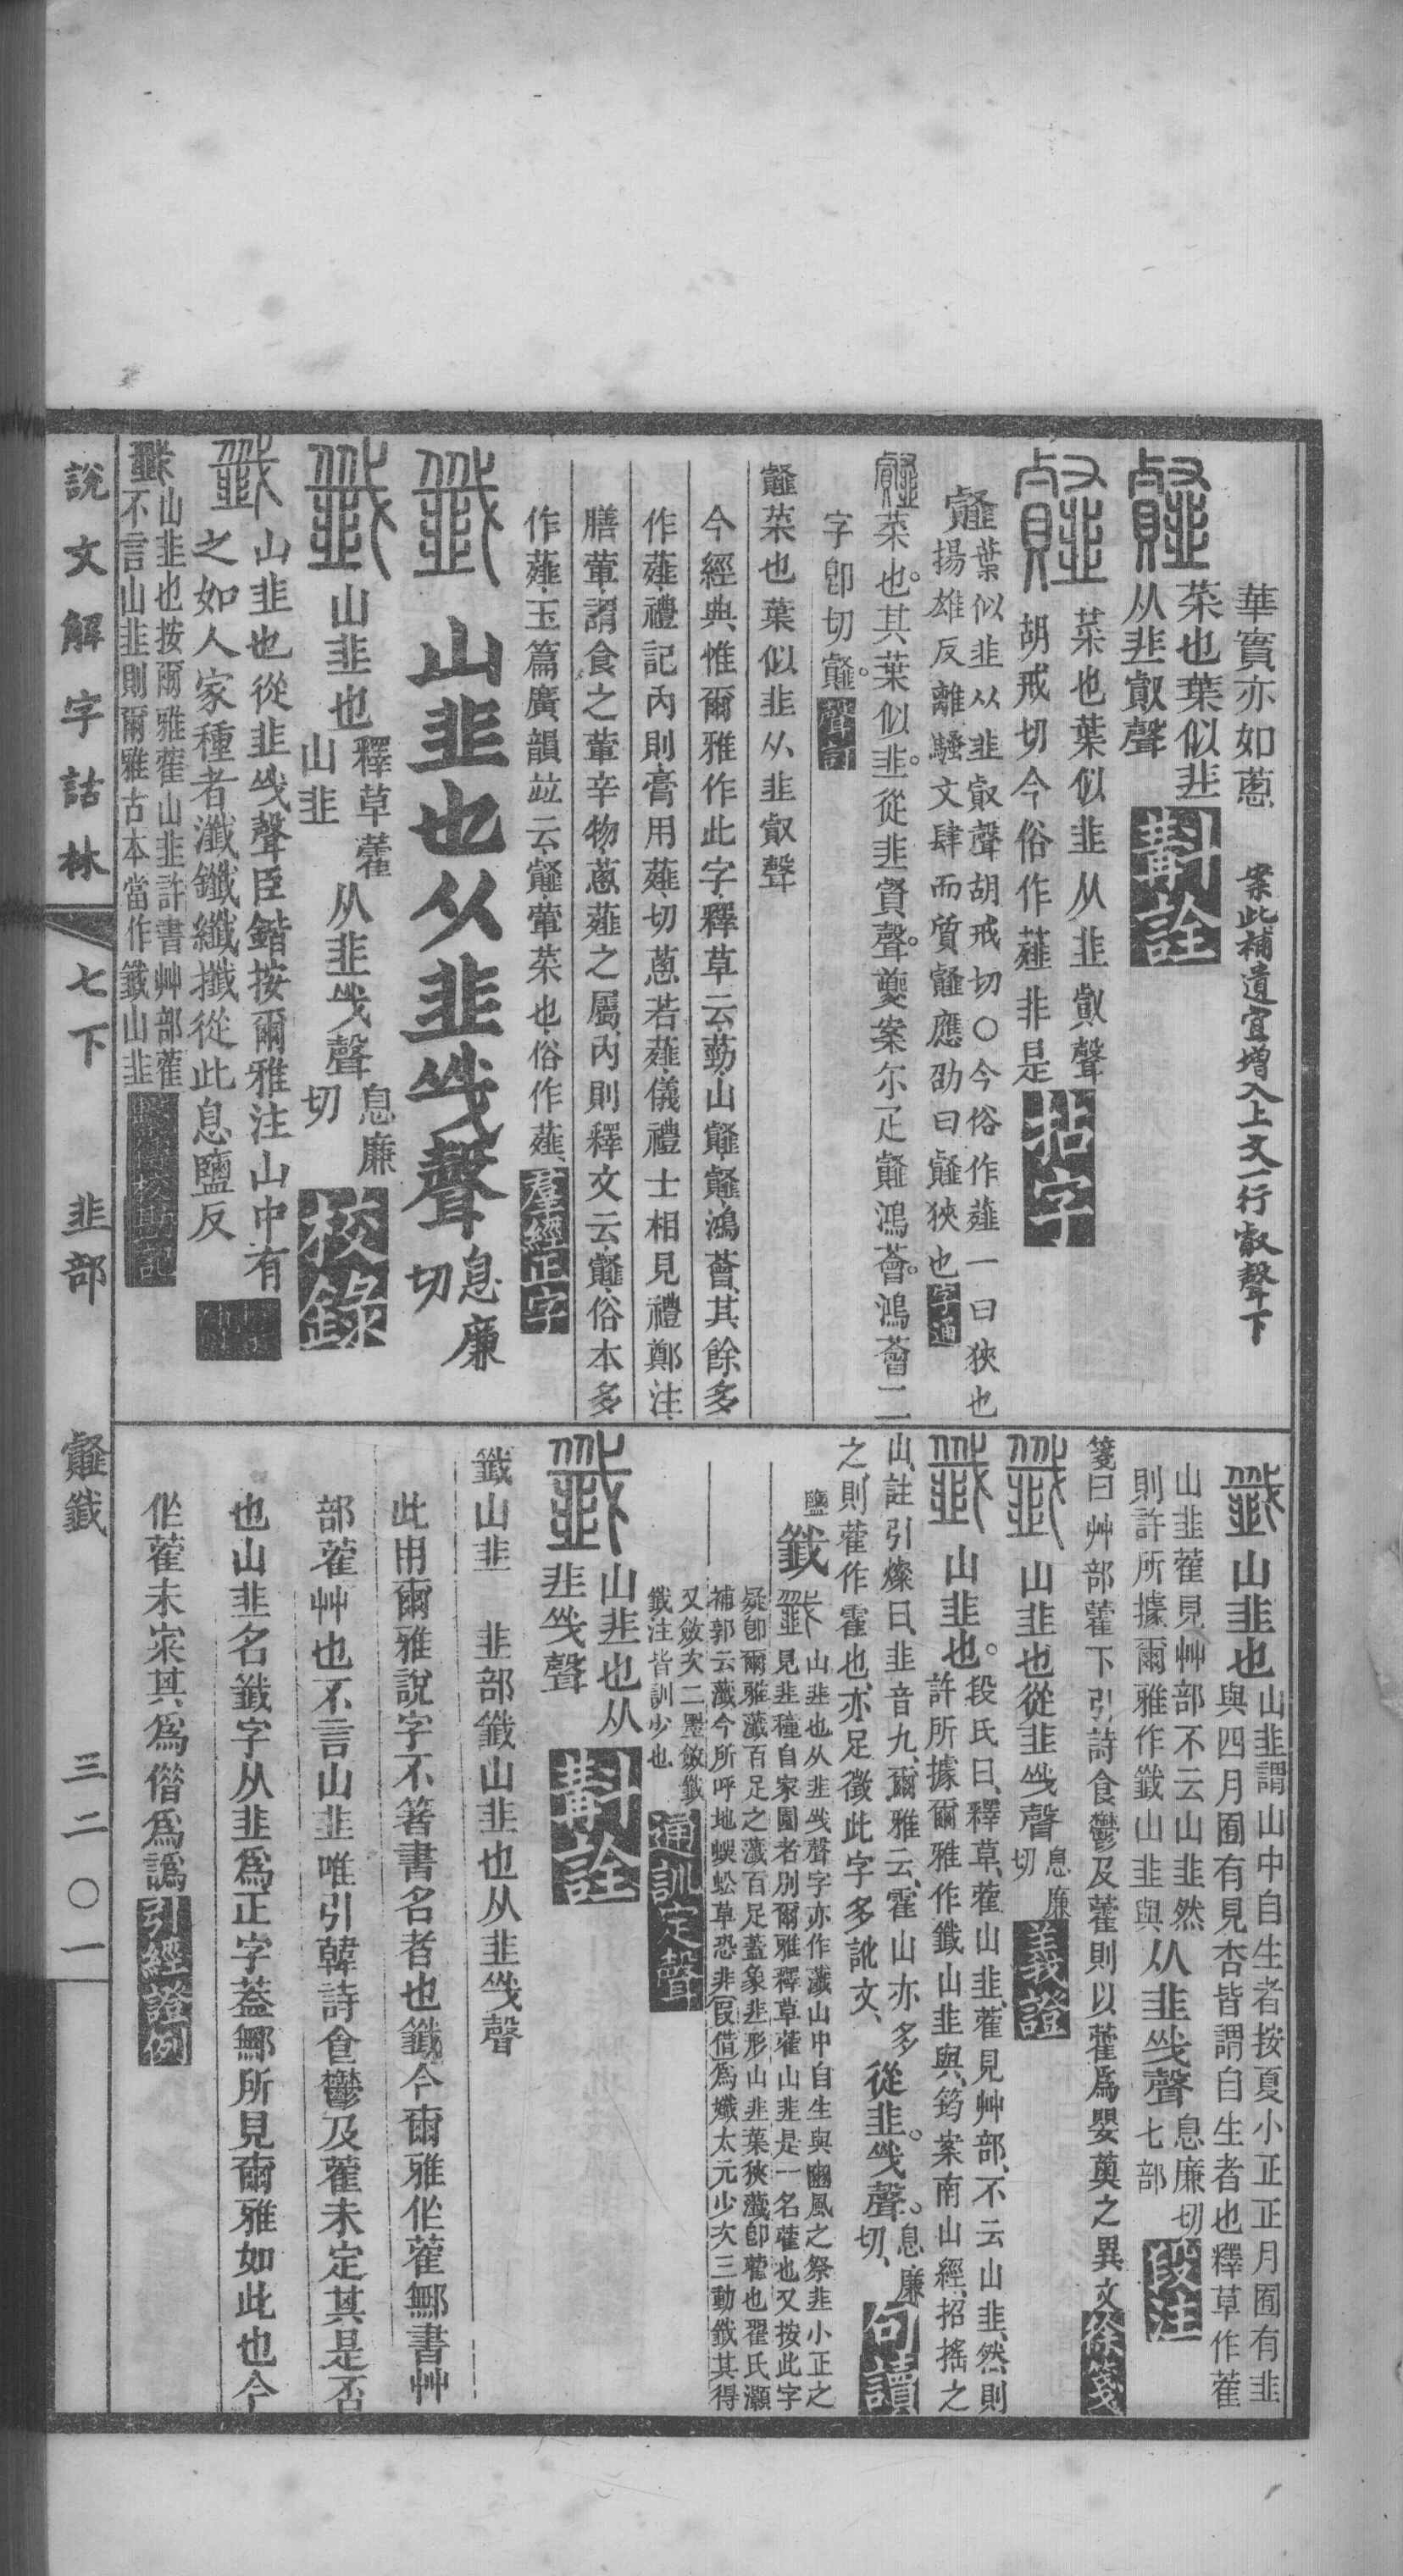 華實亦如蔥　案此補遺宜增入上文一行㕡聲下
菜也葉似韭
从韭㕡聲
斠詮
菜也葉似韭从韭㕡聲
胡戒切今俗作薤非是
拈字
䪥葉似韭从韭㕡聲胡戒切○今俗作薤一曰狹也
揚雄反離騷文肆而質䪥應劭曰䪥狹也
字通
菜也其葉似韭從韭聲夔案尔疋䪥鴻薈鴻薈二
字卽切䪥
聲訂
䪥菜也葉似韭从韭㕡聲
今經典惟爾雅作此字釋草云葝山䪥䪥鴻薈其餘多
作薤禮記內則膏用薤切蔥若薤儀禮士相見禮鄭注
膳葷謂食之葷辛物蔥薤之屬內則釋文云䪥俗本多
作薤玉篇廣韻竝云䪥葷菜也俗作薤
羣經正字
山韭也从韭㦰聲息廉切
山韭也釋草藿山韭从韭㦰聲息廉切
校錄
山韭也從韭㦰聲臣鍇按爾雅注山中有
之如人家種者瀸鑯纖攕從此息鹽反
山韭也按爾雅藿山韭許書艸部藿
不言山韭則爾雅古本當作韱山韭
說文解字詁林　七下　韭部　䪥韱　三二〇一
韱山韭也山韭謂山中自生者按夏小正正月囿有韭
與四月囿有見杏皆謂自生者也釋草作藿
山韭藿見艸部不云山韭然
則許所據爾雅作韱山韭與
从韭㦰聲息廉切七部
段注
箋曰艸部藿下引詩食鬱及藿則以藿爲嬰薁之異文
徐箋
山韭也從韭㦰聲息廉切
義證
山韭也段氏曰釋草藿山韭藿見艸部不云山韭然則
許所據爾雅作韱山韭與筠案南山經招搖之
山註引燦曰韭音九爾雅云霍山亦多
之則藿作霍也亦足徵此字多訛文
從韭㦰聲息廉切
句讀
鹽
韱山韭也从韭㦰聲字亦作蘵山中自生與豳風之祭韭小正之
見韭種自家園者別爾雅釋草藿山韭是一名藿也又按此字
疑卽爾雅蘵百足之蘵百足蓋象韭形山韭葉狹蘵卽藿也翟氏灝
補郭云蘵今所呼地蜈蚣草恐非叚借爲孅太元少次三動韱其得
又斂次二墨斂韱
韱注皆訓少也
通訓定聲
山韭也从
韭㦰聲
斠詮
韱山韭　韭部韱山韭也从韭㦰聲
此用爾雅說字不箸書名者也韱今爾雅作藿鄦書艸
部藿艸也不言山韭唯引韓詩食鬱及藿未定其是否
也山韭名韱字从韭爲正字葢鄦所見爾雅如此也今
作藿未宷其爲偕爲譌
引經證例